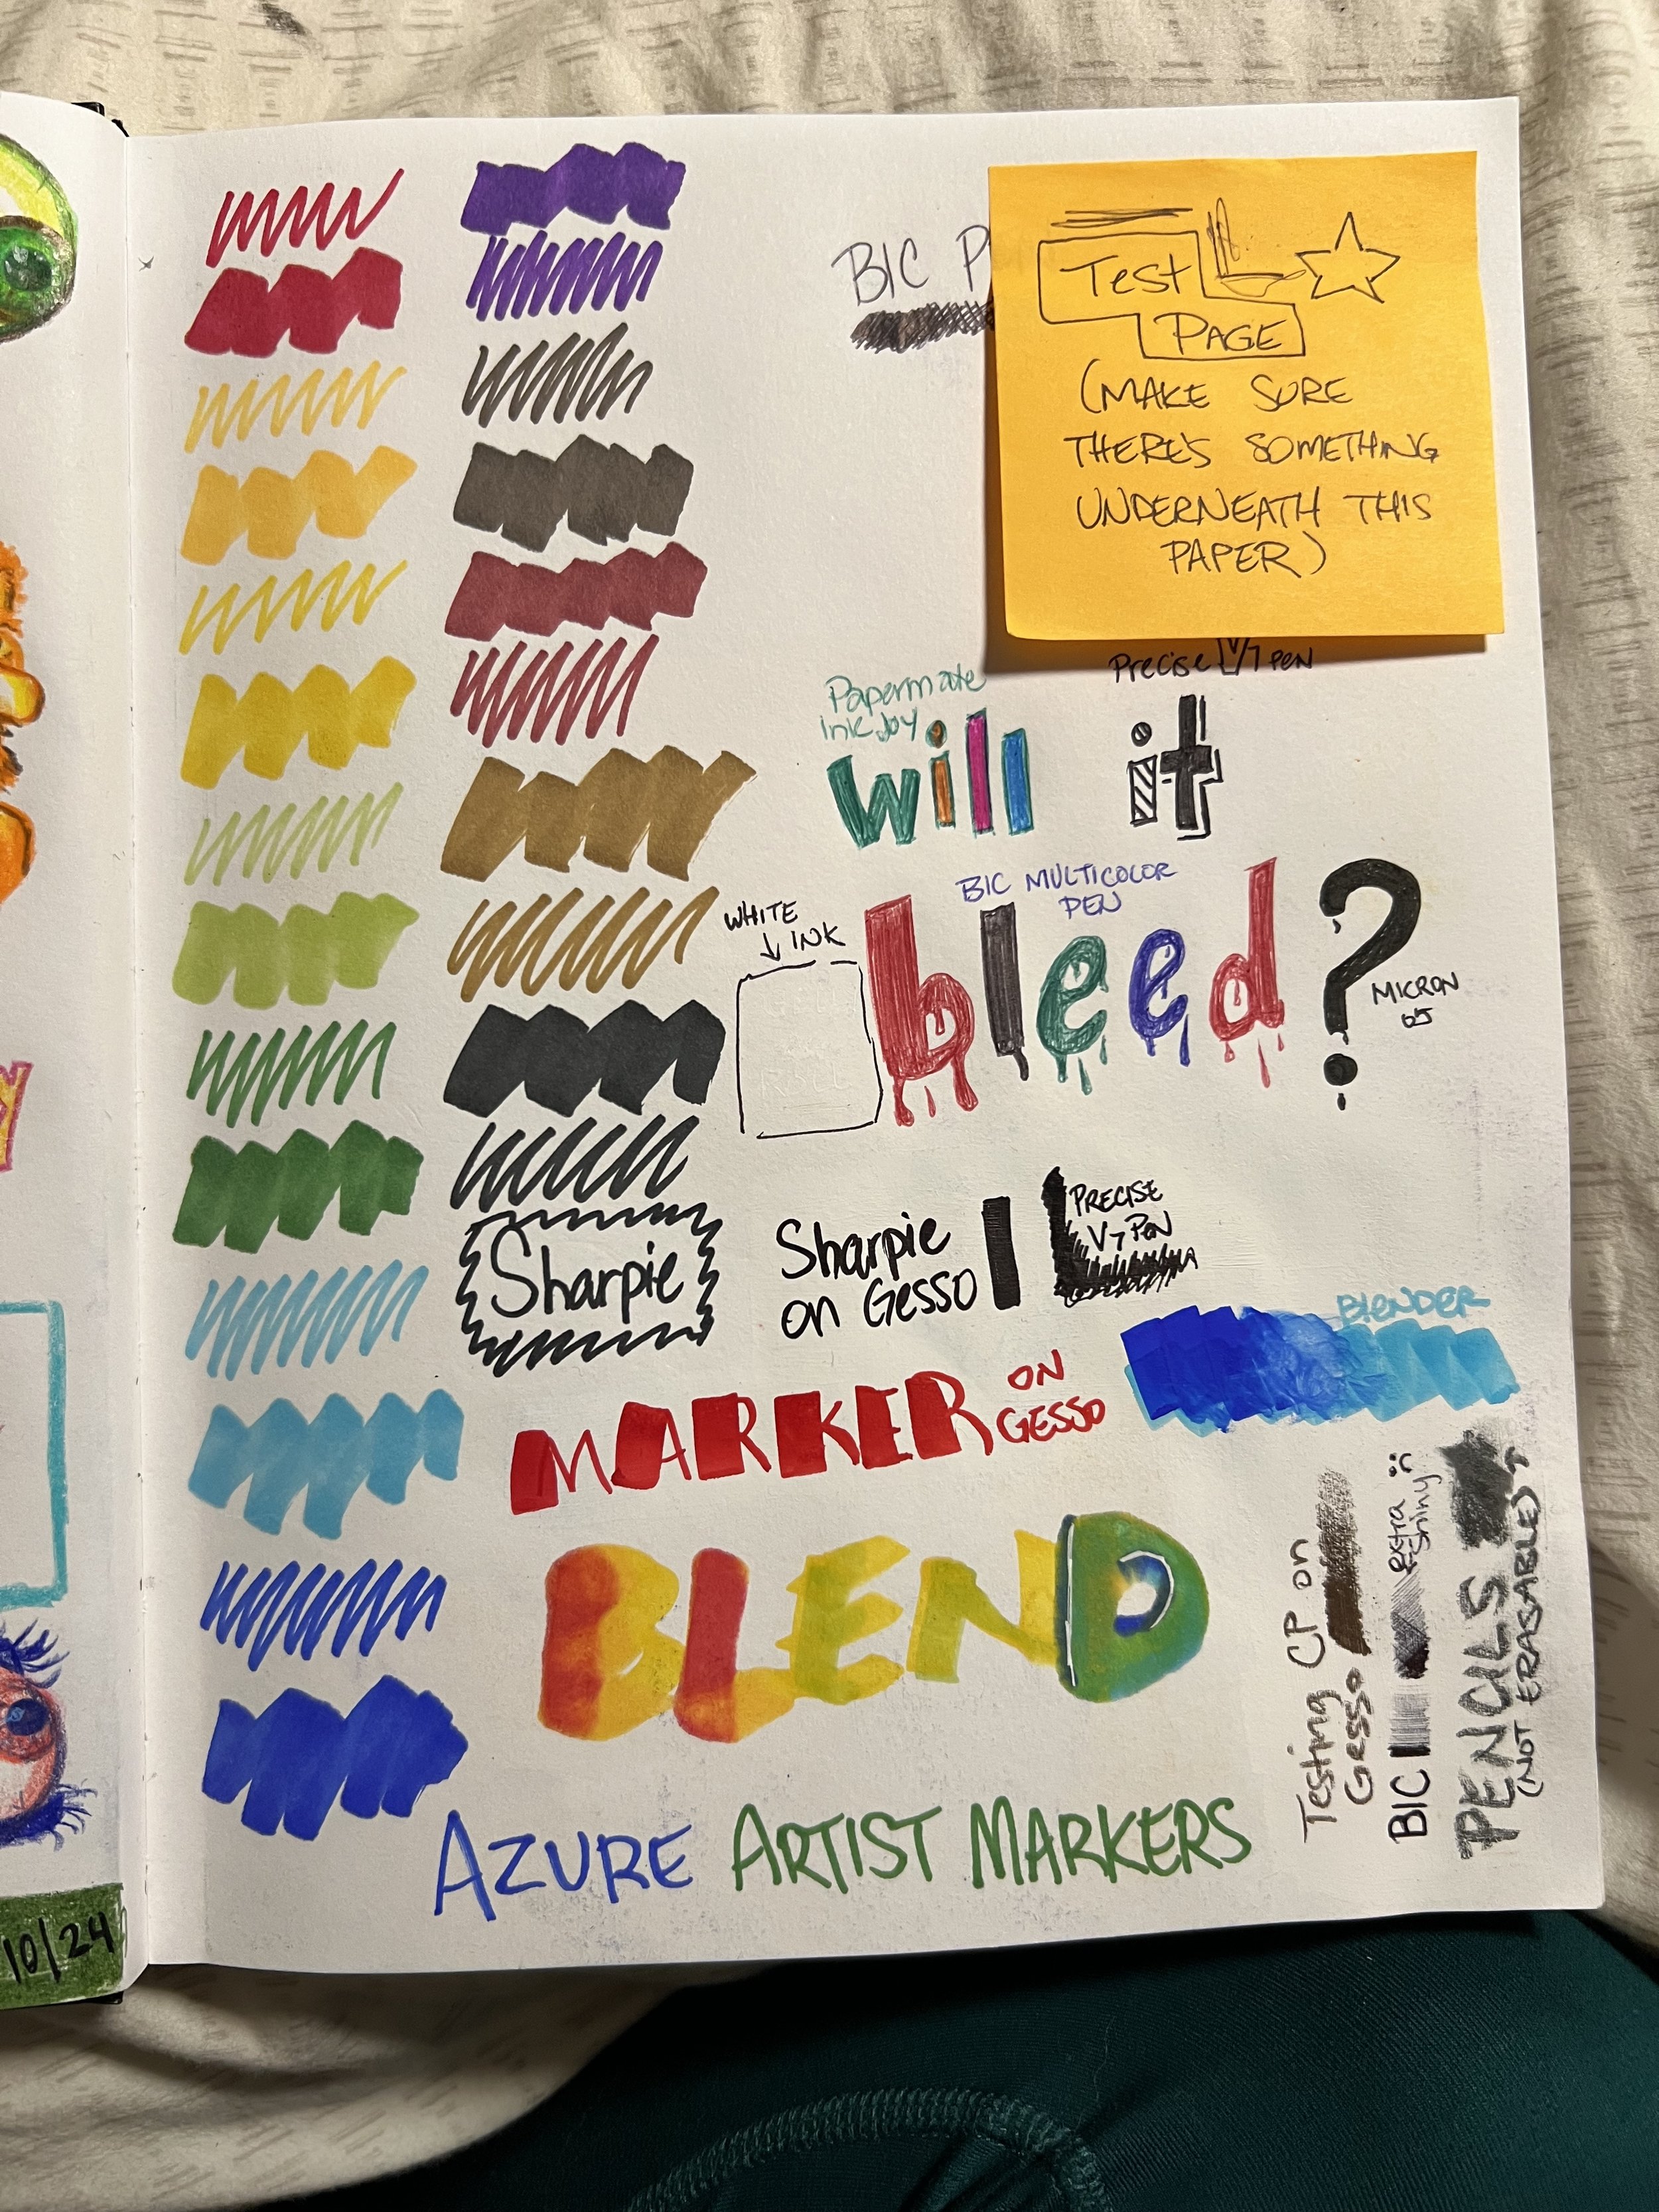 BIC
Test
PAGE
(MAKE SURE
THERE'S SOMETHING
UNDERNEATH THIS
PAPER)
Precise V7 pen
Papermate
InkJoy
will it
BIC MULTICOLOR
PEN
WHITE
INK
bleed?
MICRON
05
Sharpie
Sharpie
on Gesso
PRECISE
V7 PEN
BLENDER
MARKER
ON
GESSO
BLEND
Testing CP on
Gesso
BIC
extra
shiny
PENCILS
(NOT ERASABLE)
AZURE ARTIST MARKERS
10/24